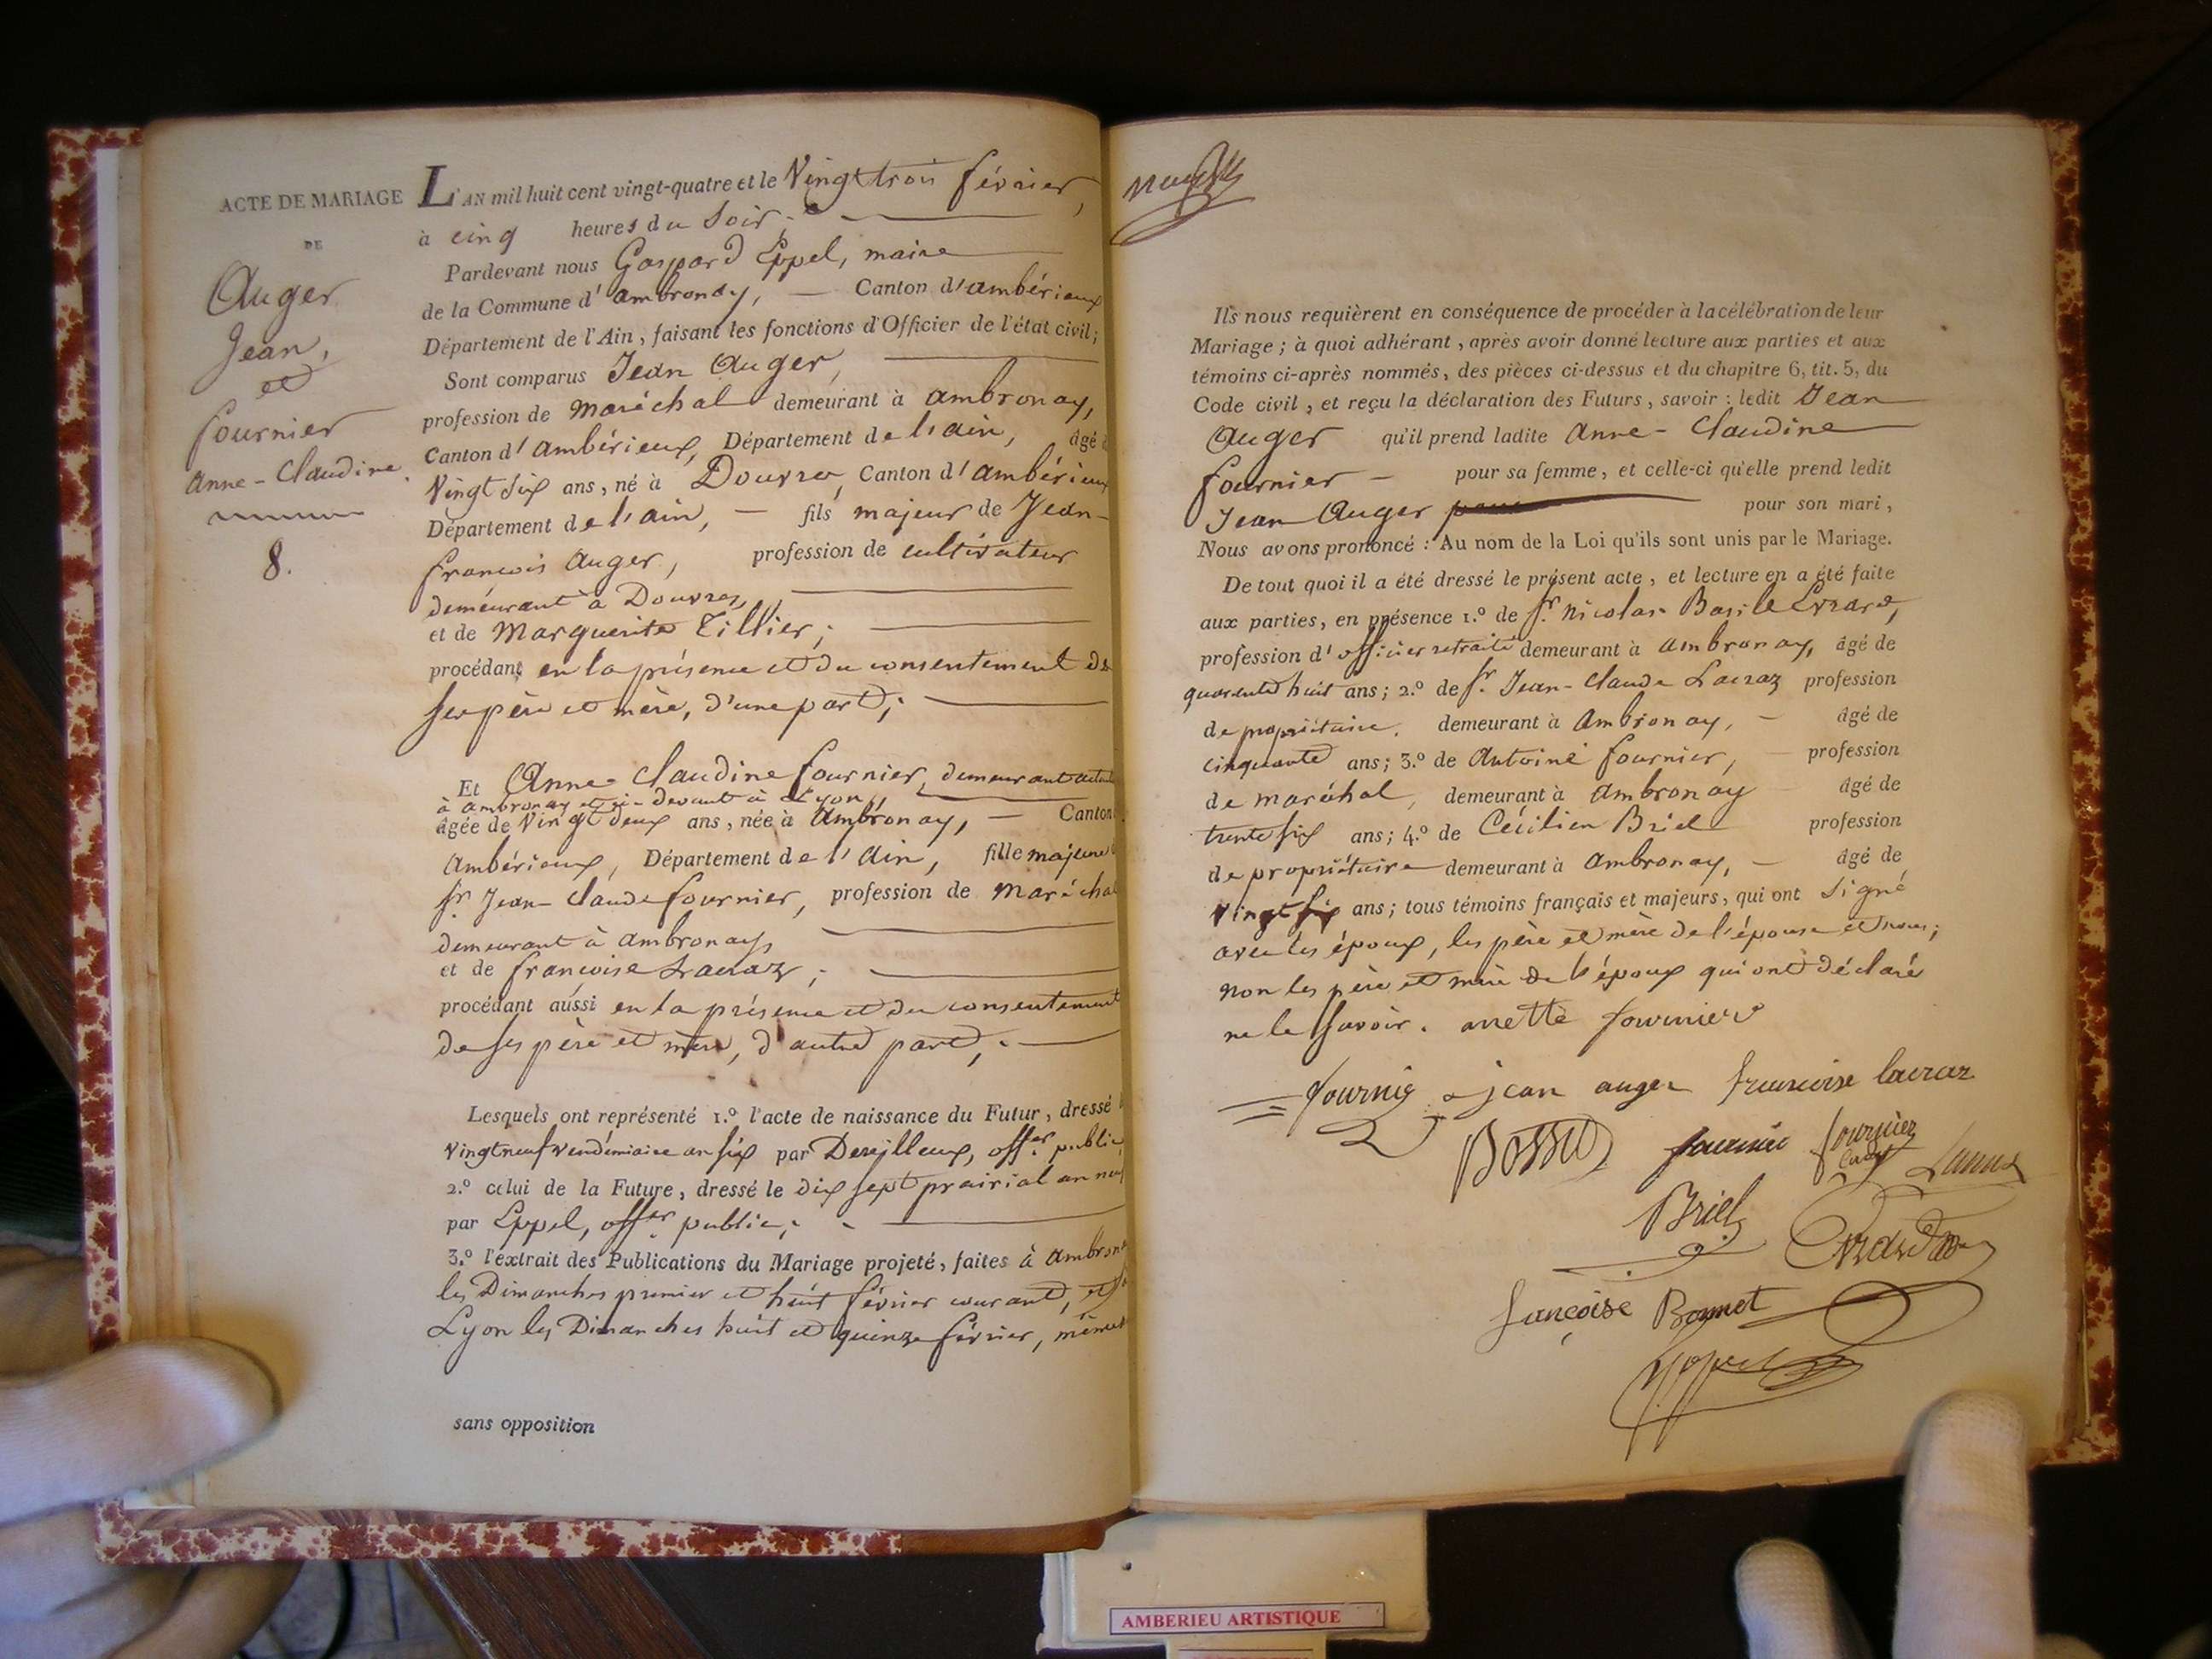 ACTE DE MARIAGE
DE
Auger
Jean,
et
fournier
anne-Claudine.
8.
L'AN mil huit cent vingt-quatre et le Vingt trois février,
à cinq heures du Soir;
Pardevant nous Gaspard Eppel, maire
de la Commune d'ambronay, — Canton d'ambérieux
Département de l'Ain, faisant les fonctions d'Officier de l'état civil;
Sont comparus Jean Auger,
profession de maréchal demeurant à ambronay,
Canton d'ambérieux, Département de l'ain, âgé
Vingt Six ans, né à Douvres, Canton d'ambérieux
Département de l'ain, — fils majeur de Jean-
françois Auger, profession de cultivateur
demeurant à Douvres,
et de Marguerite Tillier;
procédant en la présence et du consentement de
ses père et mère, d'une part;
Et Anne-Claudine fournier, demeurant
à ambronay et ci-devant à Lyon,
âgée de Vingt deux ans, née à Ambronay, — Canton
Ambérieux, Département de l'Ain, fille majeure
Sr. Jean-Claude fournier, profession de maréchal
demeurant à ambronay,
et de françoise Lacraz;
procédant aussi en la présence et du consentement
de ses père et mère, d'autre part;
Lesquels ont représenté 1.º l'acte de naissance du Futur, dressé
vingtneuf vendémiaire an six par offer. public
2.º celui de la Future, dressé le dix sept prairial an neuf
par Eppel, offer. public;
3.º l'extrait des Publications du Mariage projeté, faites à
les Dimanches premier et huit février courant, et
Lyon les Dimanches huit et quinze février,
sans opposition
Ils nous requièrent en conséquence de procéder à la célébration de leur
Mariage; à quoi adhérant, après avoir donné lecture aux parties et aux
témoins ci-après nommés, des pièces ci-dessus et du chapitre 6, tit. 5, du
Code civil, et reçu la déclaration des Futurs, savoir: ledit Jean
Auger qu'il prend ladite Anne-Claudine
fournier — pour sa femme, et celle-ci qu'elle prend ledit
Jean Auger pour son mari,
Nous avons prononcé: Au nom de la Loi qu'ils sont unis par le Mariage.
De tout quoi il a été dressé le présent acte, et lecture en a été faite
aux parties, en présence 1.º de Sr. Nicolas Basile Evrard,
profession d'officier retraité demeurant à ambronay, âgé de
quarente huit ans; 2.º de Sr. Jean-Claude Lacraz profession
de propriétaire, demeurant à Ambronay, — âgé de
cinquante ans; 3.º de Antoine fournier, profession
de maréchal, demeurant à Ambronay âgé de
trente six ans; 4.º de Cécilien Briel profession
de propriétaire demeurant à ambronay, — âgé de
vingt six ans; tous témoins français et majeurs, qui ont Signé
avec les époux, les père et mère de l'épouse et nous;
non les père et mère de l'époux qui ont déclaré
ne le savoir. anette fournier
jean auger francoise lacraz
Bossu fournier fournier
Briel
Bonnet
AMBERIEU ARTISTIQUE